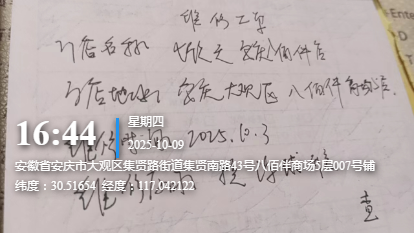 维修工单
门店名称 安庆八佰伴店
门店地址 安庆大观区八佰伴商场
维修时间 2025.10.3
16:44 星期四
2025-10-09
安徽省安庆市大观区集贤路街道集贤南路43号八佰伴商场5层007号铺
纬度：30.51654 经度：117.042122
维修内容
查